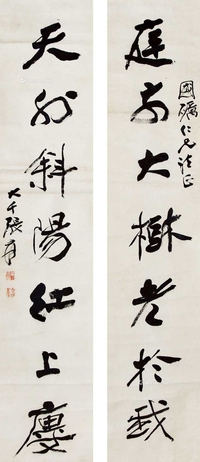 庭前大樹老於我
國礪仁兄法正
天外斜陽紅上廔
大千張爰